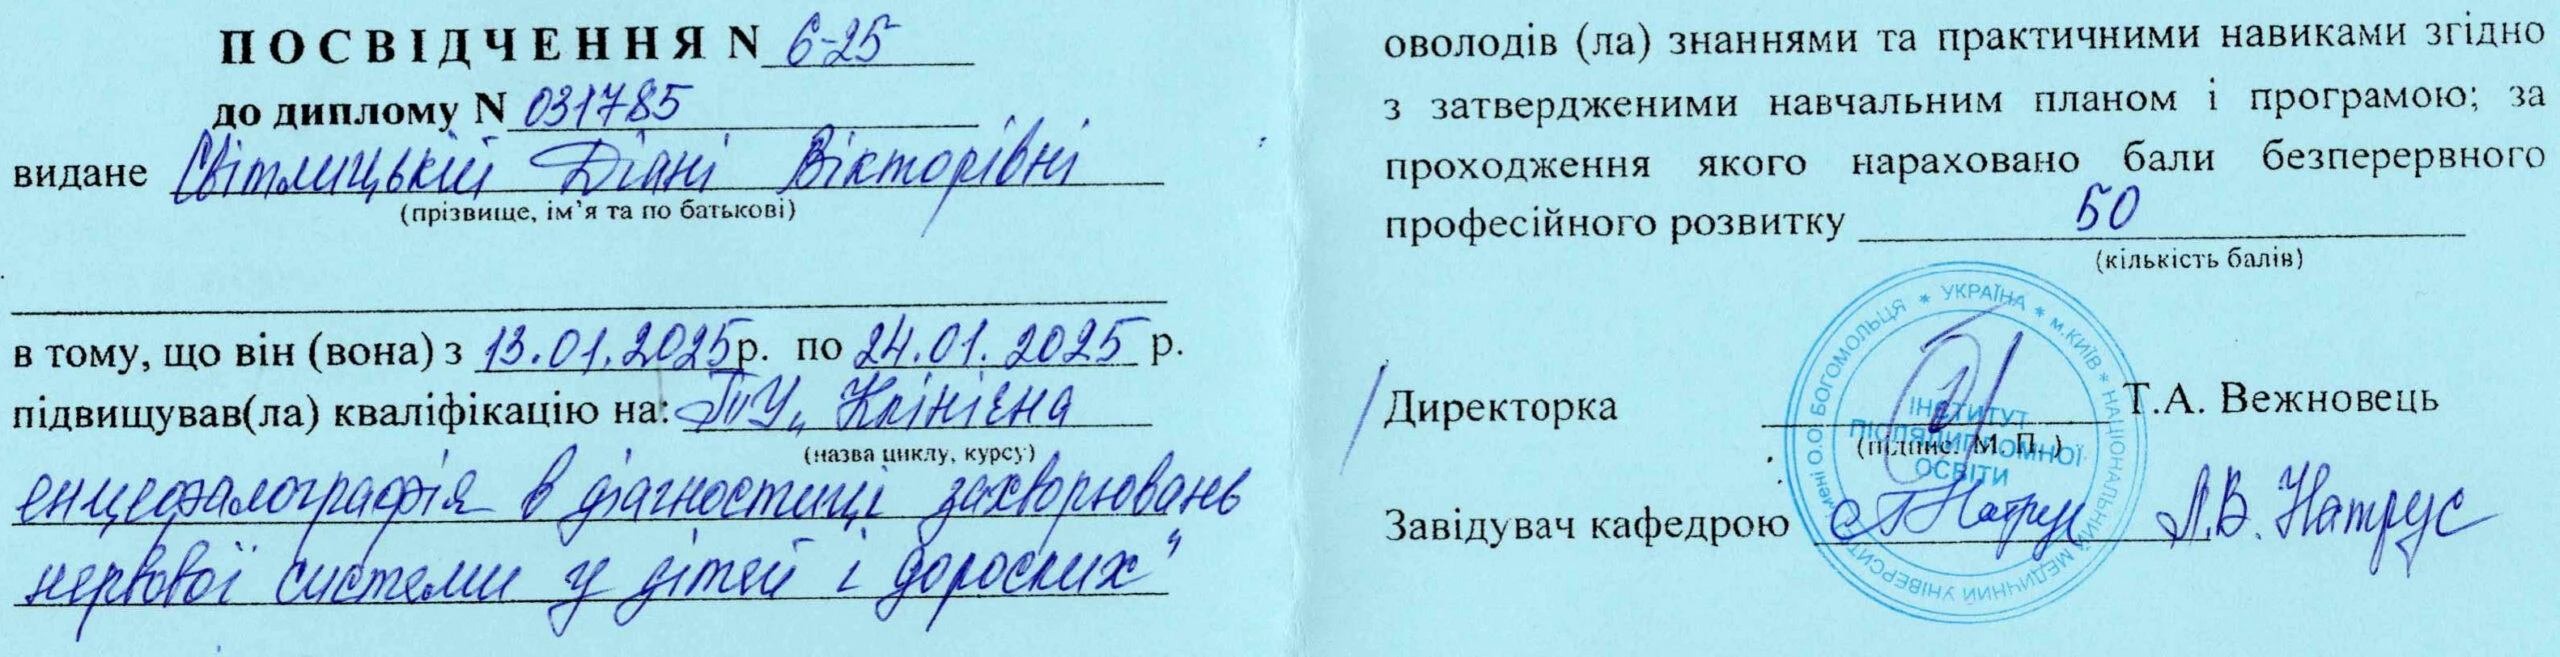 ПОСВІДЧЕННЯ N 6-25
до диплому N 031785
видане Світлицькій Діані Вікторівні
(прізвище, ім’я та по батькові)
в тому, що він (вона) з 13.01.2025р. по 24.01.2025 р.
підвищував(ла) кваліфікацію на: ТУ „ Клінічна
(назва циклу, курсу)
енцефалографія в діагностиці захворювань
нервової системи у дітей і дорослих"
оволодів (ла) знаннями та практичними навиками згідно
з затвердженими навчальним планом і програмою; за
проходження якого нараховано бали безперервного
професійного розвитку 50
(кількість балів)
Директорка Т.А. Вежновець
(підпис. М. П. )
Завідувач кафедрою Л.В. Натрус
* УКРАЇНА * м.КИЇВ * НАЦІОНАЛЬНИЙ МЕДИЧНИЙ УНІВЕРСИТЕТ імені О.О. БОГОМОЛЬЦЯ
ІНСТИТУТ
ПІСЛЯДИПЛОМНОЇ
ОСВІТИ